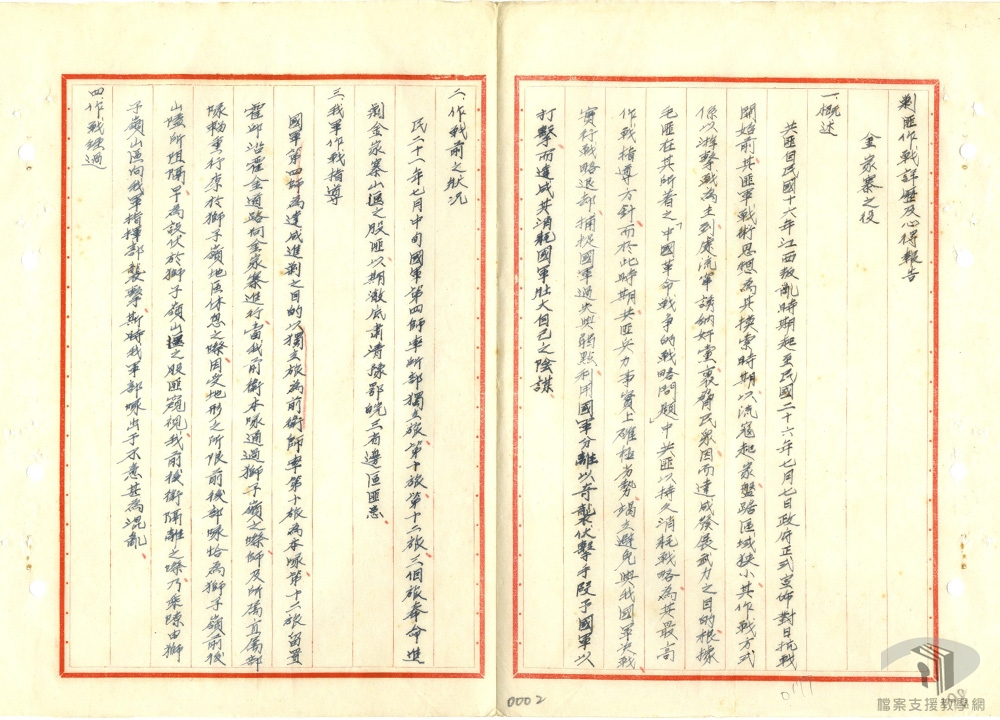 剿匪作戰詳歷及心得報告
金家寨之役
一、概述
共匪自民國十六年江西叛亂時期起至民國二十六年七月七日政府正式宣佈對日抗戰
開始前其匪軍戰術思想為其摸索時期以流寇起家盤踞區域狹小其作戰方式
係以游擊戰為主到處流竄誘納奸黨裹脅民眾因而達成發展武力之目的根據
毛匪在其所著之「中國革命戰爭的戰略問題」中共匪以持久消耗戰略為其最高
作戰指導方針而於此時期共匪兵力事實上確極劣勢竭力避免與我國軍決戰
實行戰略退却捕捉國軍過失與弱點利用國軍分離以奇襲伏擊手段予國軍以
打擊而達成其消耗國軍壯大自己之陰謀
二、作戰前之狀況
民二十一年七月中旬國軍第四師率所部獨立旅第十旅第十二旅三個旅奉命進
剿金家寨山區之股匪以期澈底肅清豫鄂皖三省邊區匪患
三、我軍作戰指導
國軍第四師為達成進剿之目的以獨立旅為前衛師率第十旅為本隊第十二旅留置
霍邱沿霍金道路向金家寨進行當我前衛本隊通過獅子嶺之際師及所屬直屬部
隊輜重行李於獅子嶺地區休息之際因受地形之所限前後部隊恰為獅子嶺前後
山隘所阻隔早為設伏於獅子嶺山區之股匪窺視我前後衛隔離之際乃乘隙由獅
子嶺山區向我軍指揮部襲擊斯時我軍部隊出于不意甚為混亂
四、作戰經過
0002
檔案支援教學網